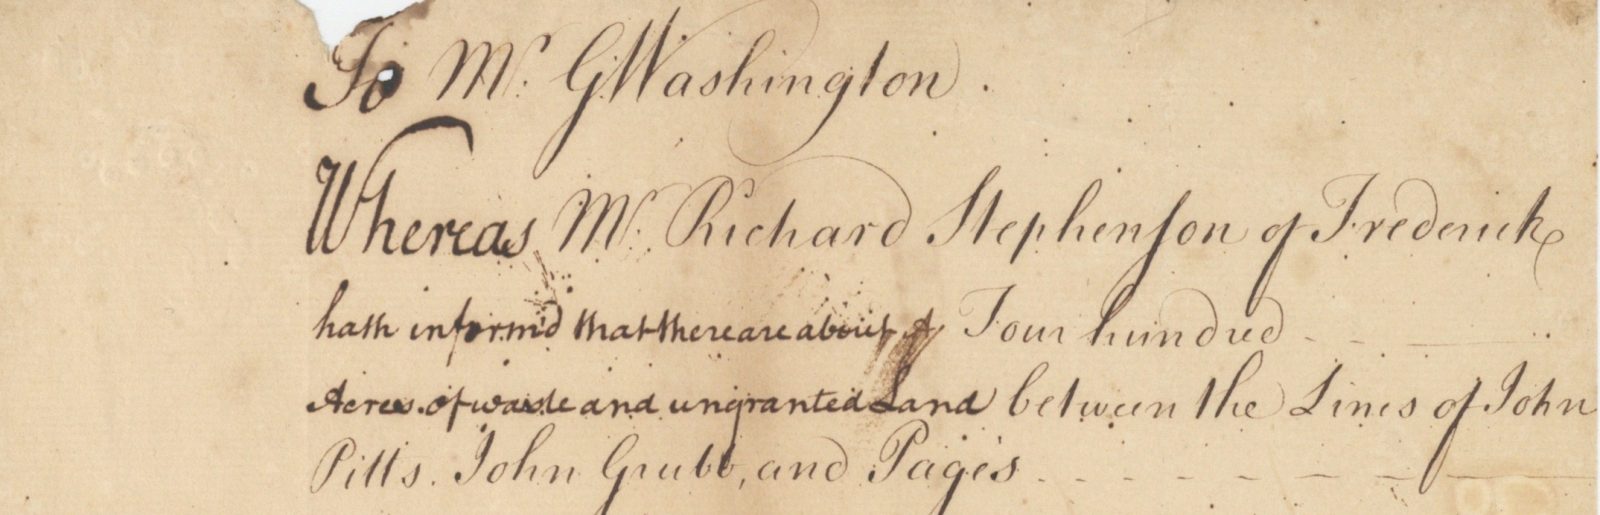 To Mr. GWashington.
Whereas Mr. Richard Stephenson of Frederick
hath inform'd that there are about Four hundred
Acres of waste and ungranted Land between the Lines of John
Pitts. John Grubb, and Pages